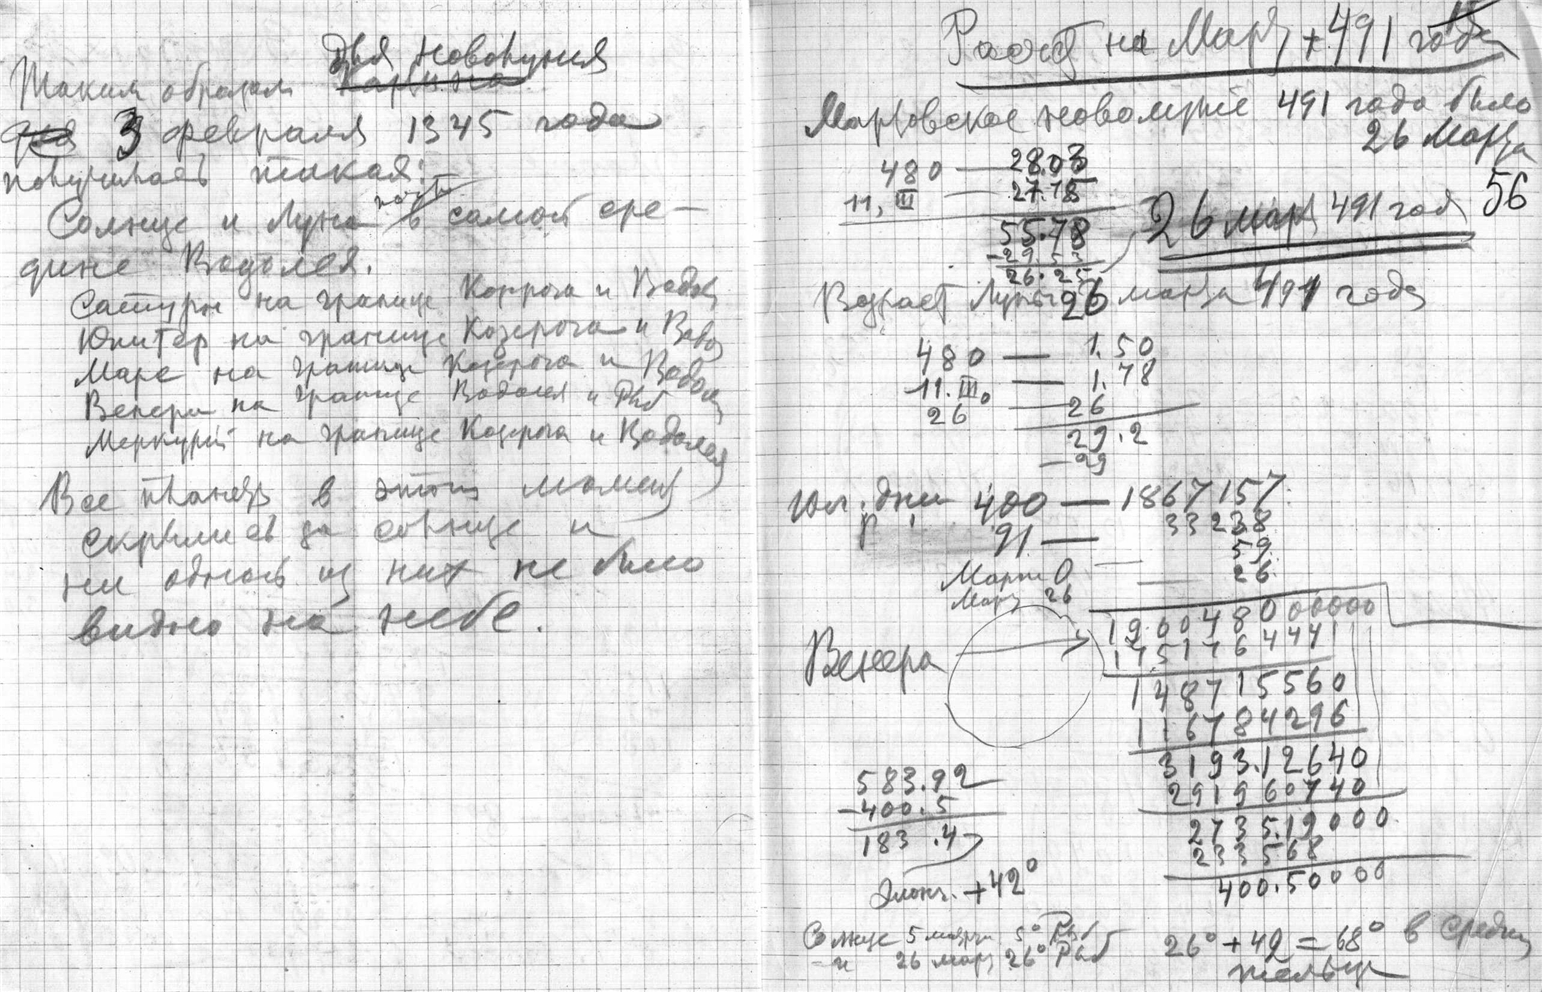 Для новолуния
Таким образом картина
для 3 февраля 1345 года
получилась такая:
Солнце и Луна почти в самой сре-
дине Водолея.
Сатурн на границе Козерога и Водол
Юпитер на границе Козерога и Водол
Марс на границе Козерога и Водол
Венера на границе Водолея и Рыб
Меркурий на границе Козерога и Водолея
Все планеты в этот момент
скрылись за солнце и
ни одной из них не было
видно на небе.
Расчёт на Март +491 года
Мартовское новолуние 491 года было
26 Марта
480 — 28.03
11, III — 27.78
55.78
-29.53
26.25
26 март 491 год
56
Возраст Луны 26 марта 491 года
480 — 1.50
11.III. — 1.78
26 — 26
29.2
-29
Юл. дни 400 — 1867157.
91 — 33238
59.
Март 0 — 26
Март 26
1900480 00000
Венера
1751764441
148715560
116784296
3193.12640
291960740
2735.19000
233568
400.50000
583.92
-400.5
183.4
Элонг. +42°
Солнце 5 марта 5° Рыб
—"— 26 март 26° Рыб
26° + 42 = 68° в средин
тельца